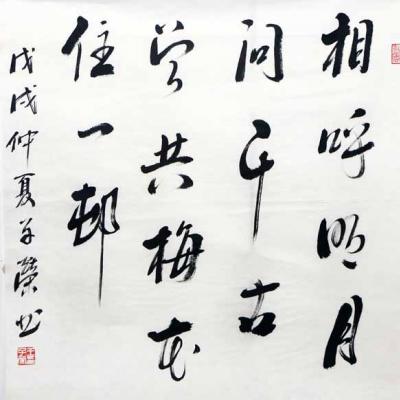 相呼明月
问千古
曾共梅花
住一邨
戊戌仲夏 榮书